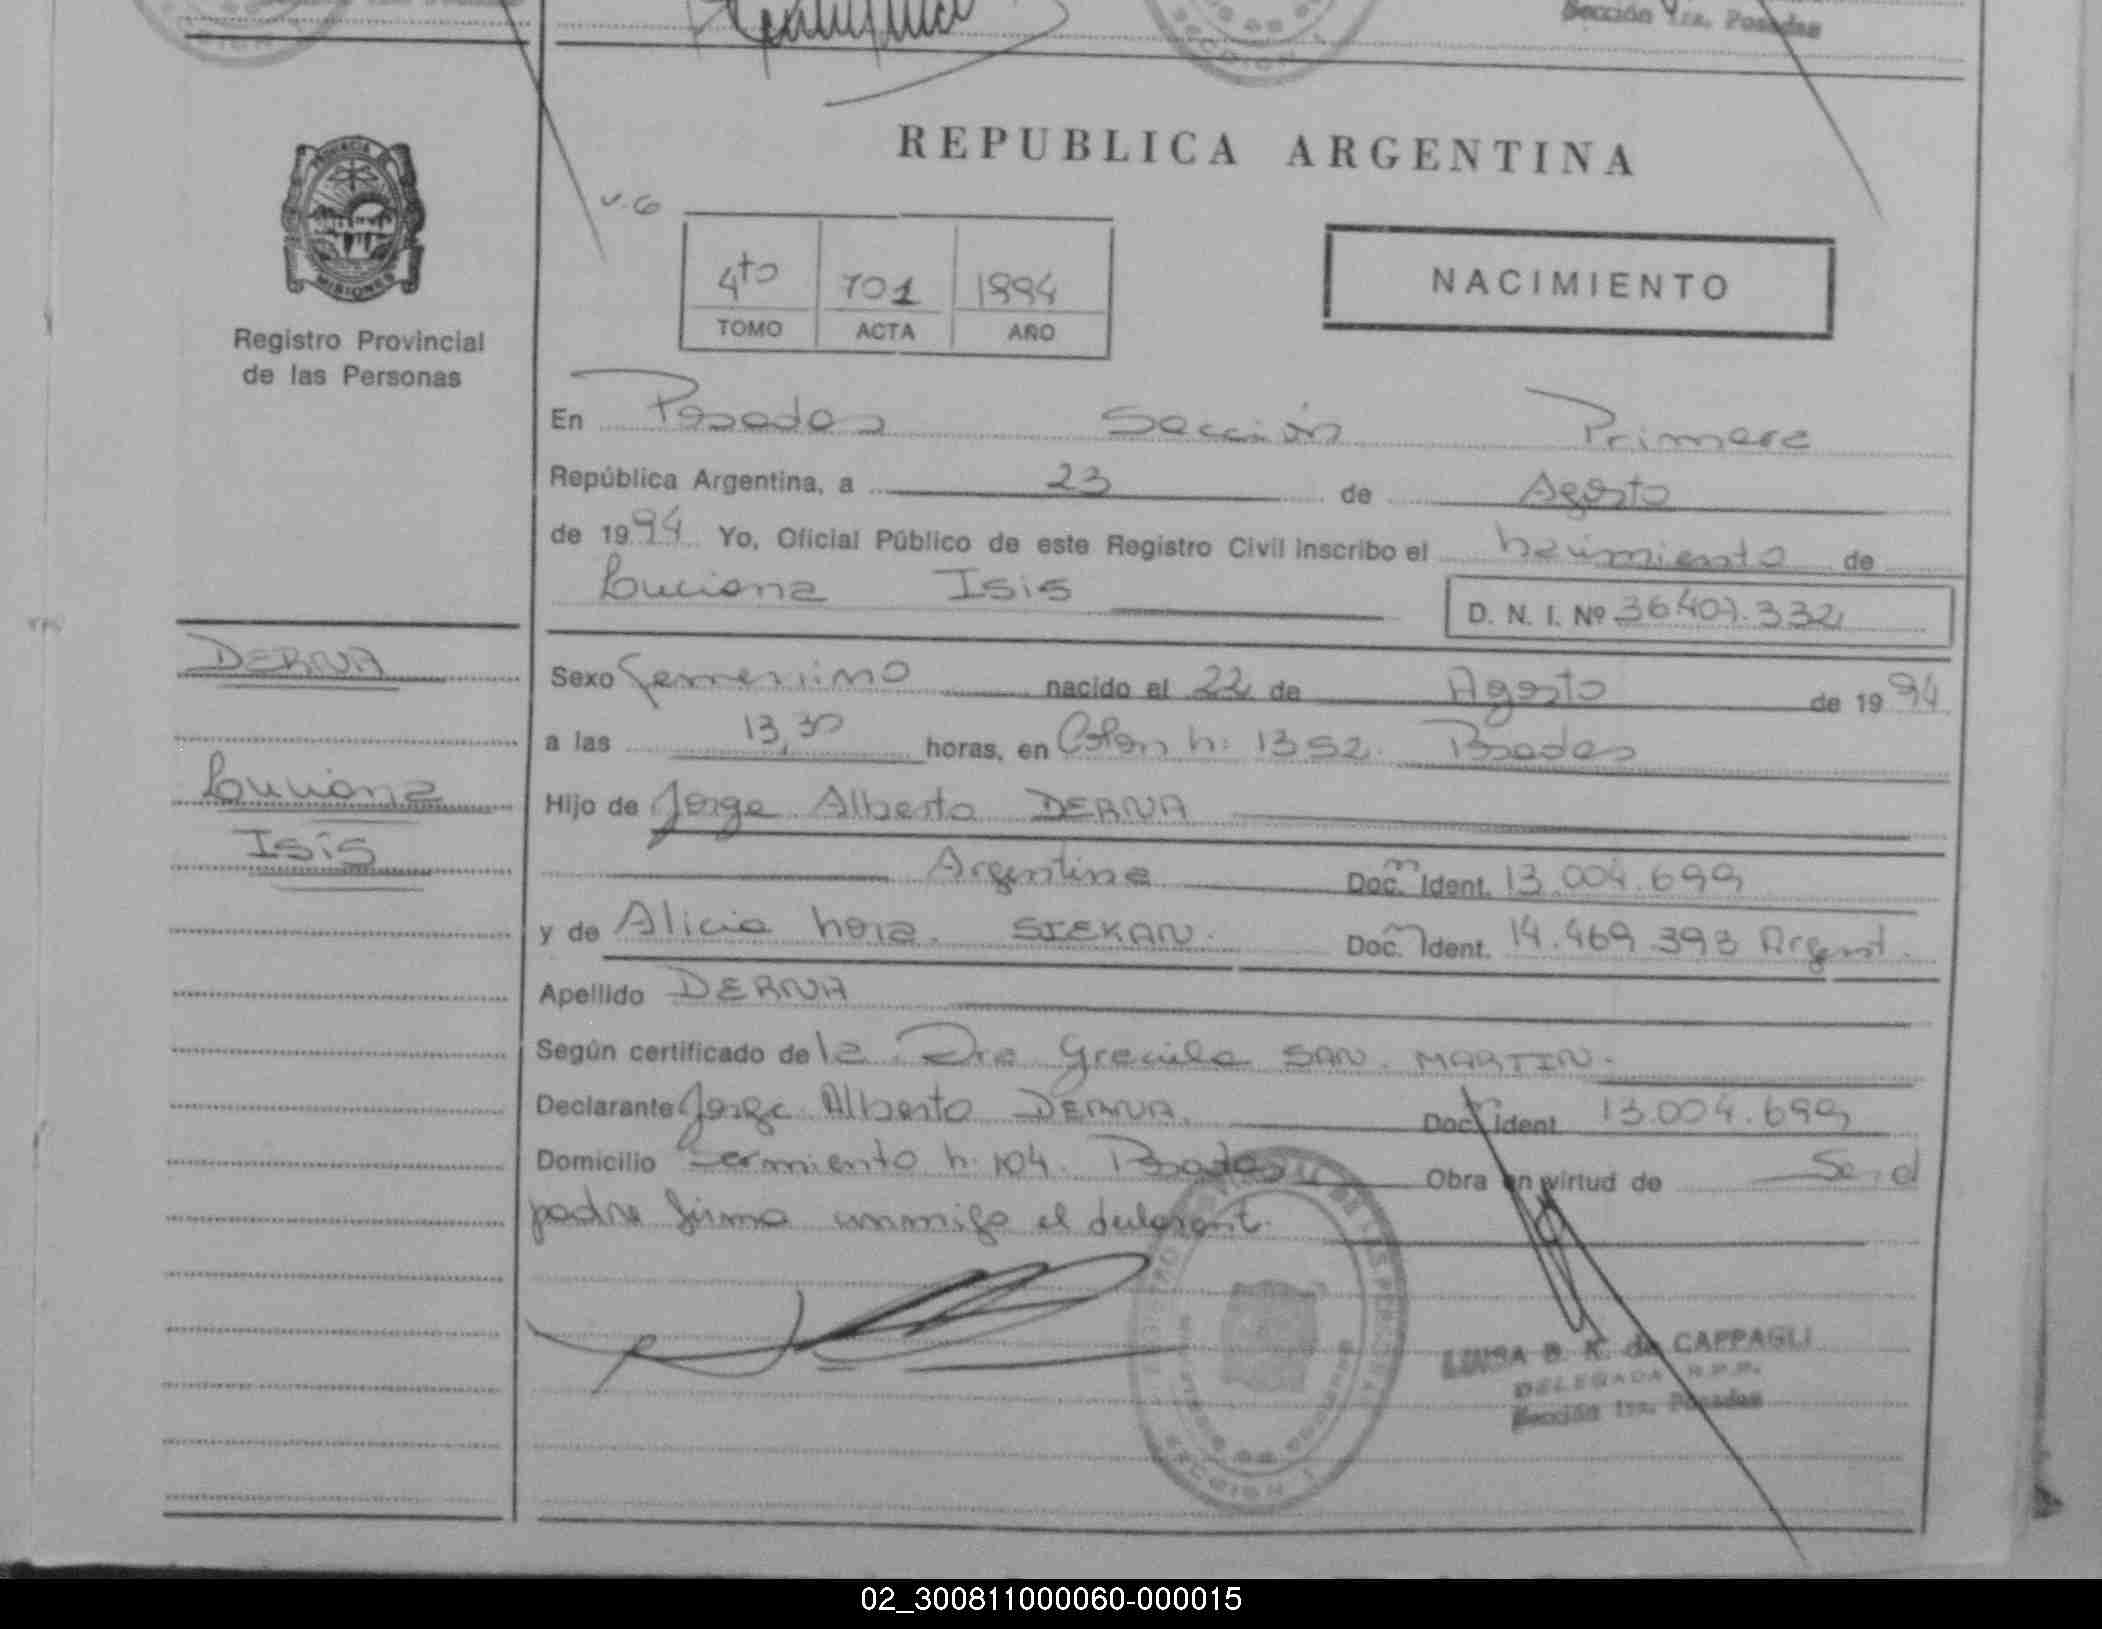 Sección 1ra. Posadas
REPUBLICA ARGENTINA
PROVINCIA DE
MISIONES
Registro Provincial
de las Personas
4to 701 1994
TOMO ACTA AÑO
NACIMIENTO
En Posadas Sección Primera
República Argentina, a 23 de Agosto
de 1994 Yo, Oficial Público de este Registro Civil inscribo el nacimiento de
Luciana Isis
D. N. I. Nº 36.407.332
DERNA
Luciana
Isis
Sexo femenino nacido el 22 de Agosto de 1994
a las 13,30 horas, en Colon n: 1352. Posadas
Hijo de Jorge Alberto DERNA
Argentina Doc. Ident. 13.004.699
y de Alicia Nora SIEKAN. Doc. Ident. 14.469.393 Argent.
Apellido DERNA
Según certificado de la Dra Graciela SAN MARTIN.
Declarante Jorge Alberto DERNA. Doc. Ident. 13.004.699
Domicilio Sarmiento n. 104. Posadas Obra en virtud de Se. el
padre firma conmigo el declarant.
LUISA B. K. de CAPPAGLI
DELEGADA R.P.P.
Sección 1ra. Posadas
SECCION 1
02_300811000060-000015